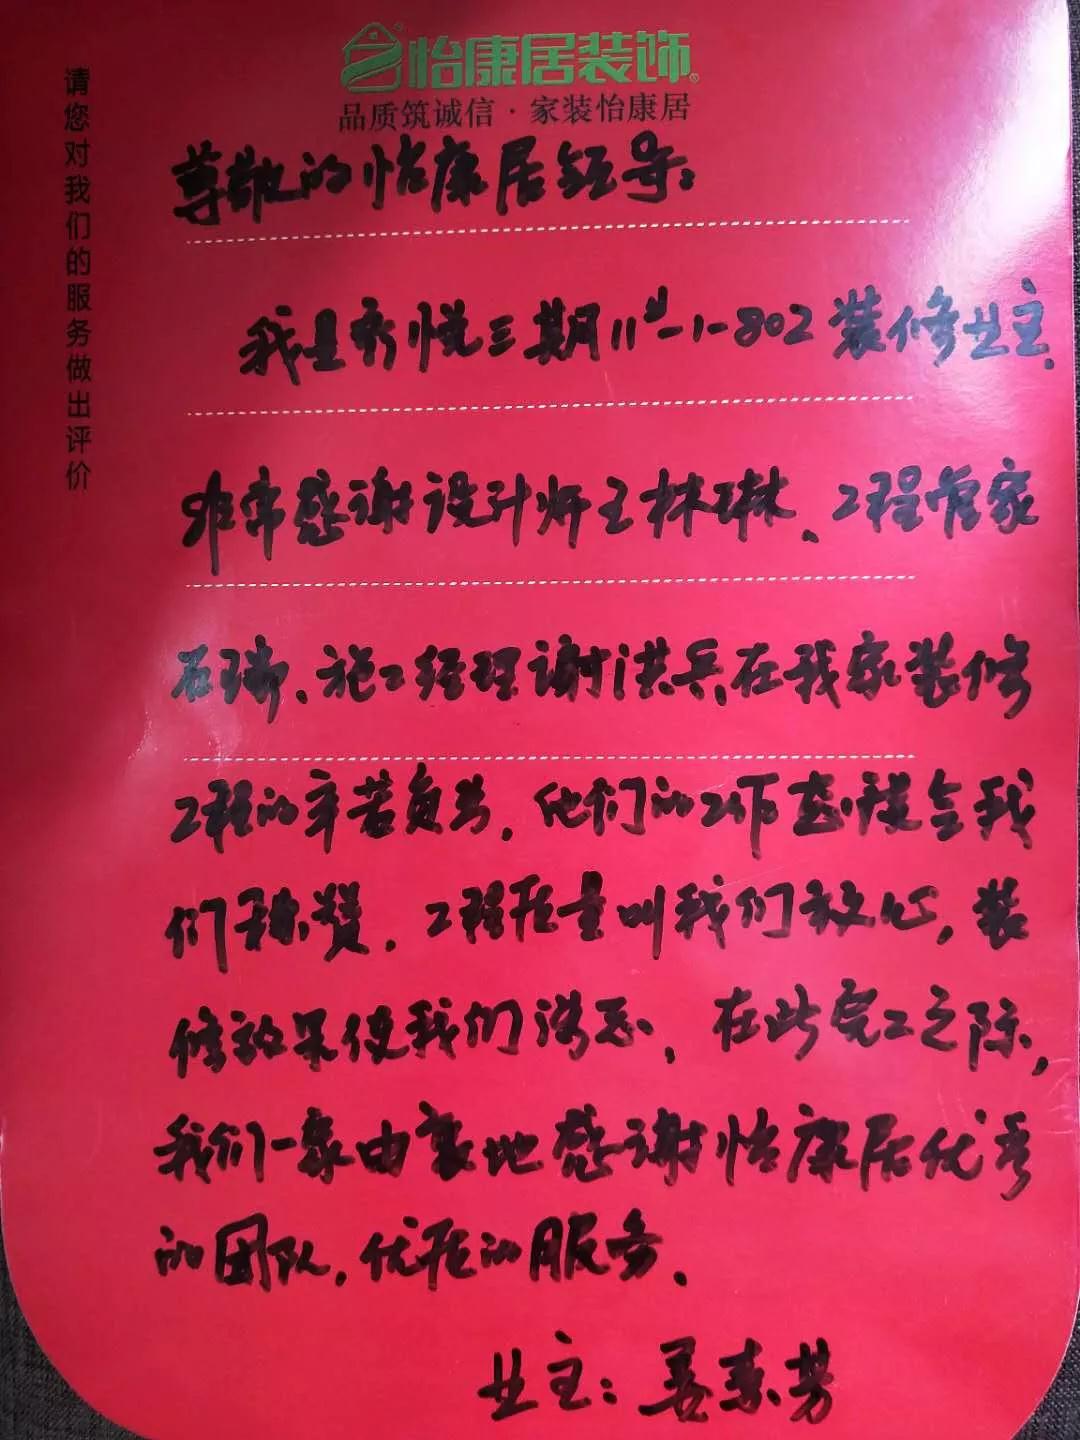 怡康居装饰
品质筑诚信·家装怡康居
请您对我们的服务做出评价
尊敬的怡康居领导：
我是秀悦三期11#-1-802装修业主.
非常感谢设计师王林琳、工程管家
石瑞、施工经理谢洪兵,在我家装修
工程的辛苦负责. 他们的工作态度令我
们称赞. 工程质量叫我们放心, 装
修效果使我们满意, 在此完工之际,
我们一家由衷地感谢怡康居优秀
的团队. 优质的服务.
业主：姜素芳